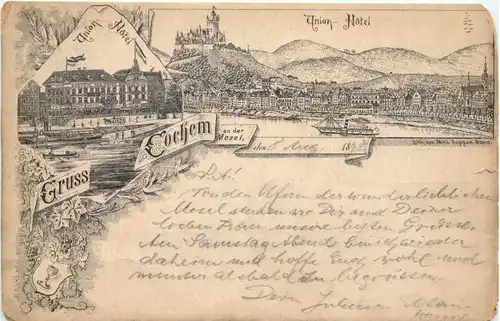 Union Hôtel
Union-Hôtel
Gruss
Cochem
an der
Mosel,
den 8 Aug. 189
Von den Ufern der wunderlieblichen
Mosel senden wir Dir und Deiner
lieben Frau unsre besten Grüsse.
Am Samstag Abend bin ich wieder
daheim und hoffe Euch wohl und
munter alsbald zu begrüssen.
Dein Julius